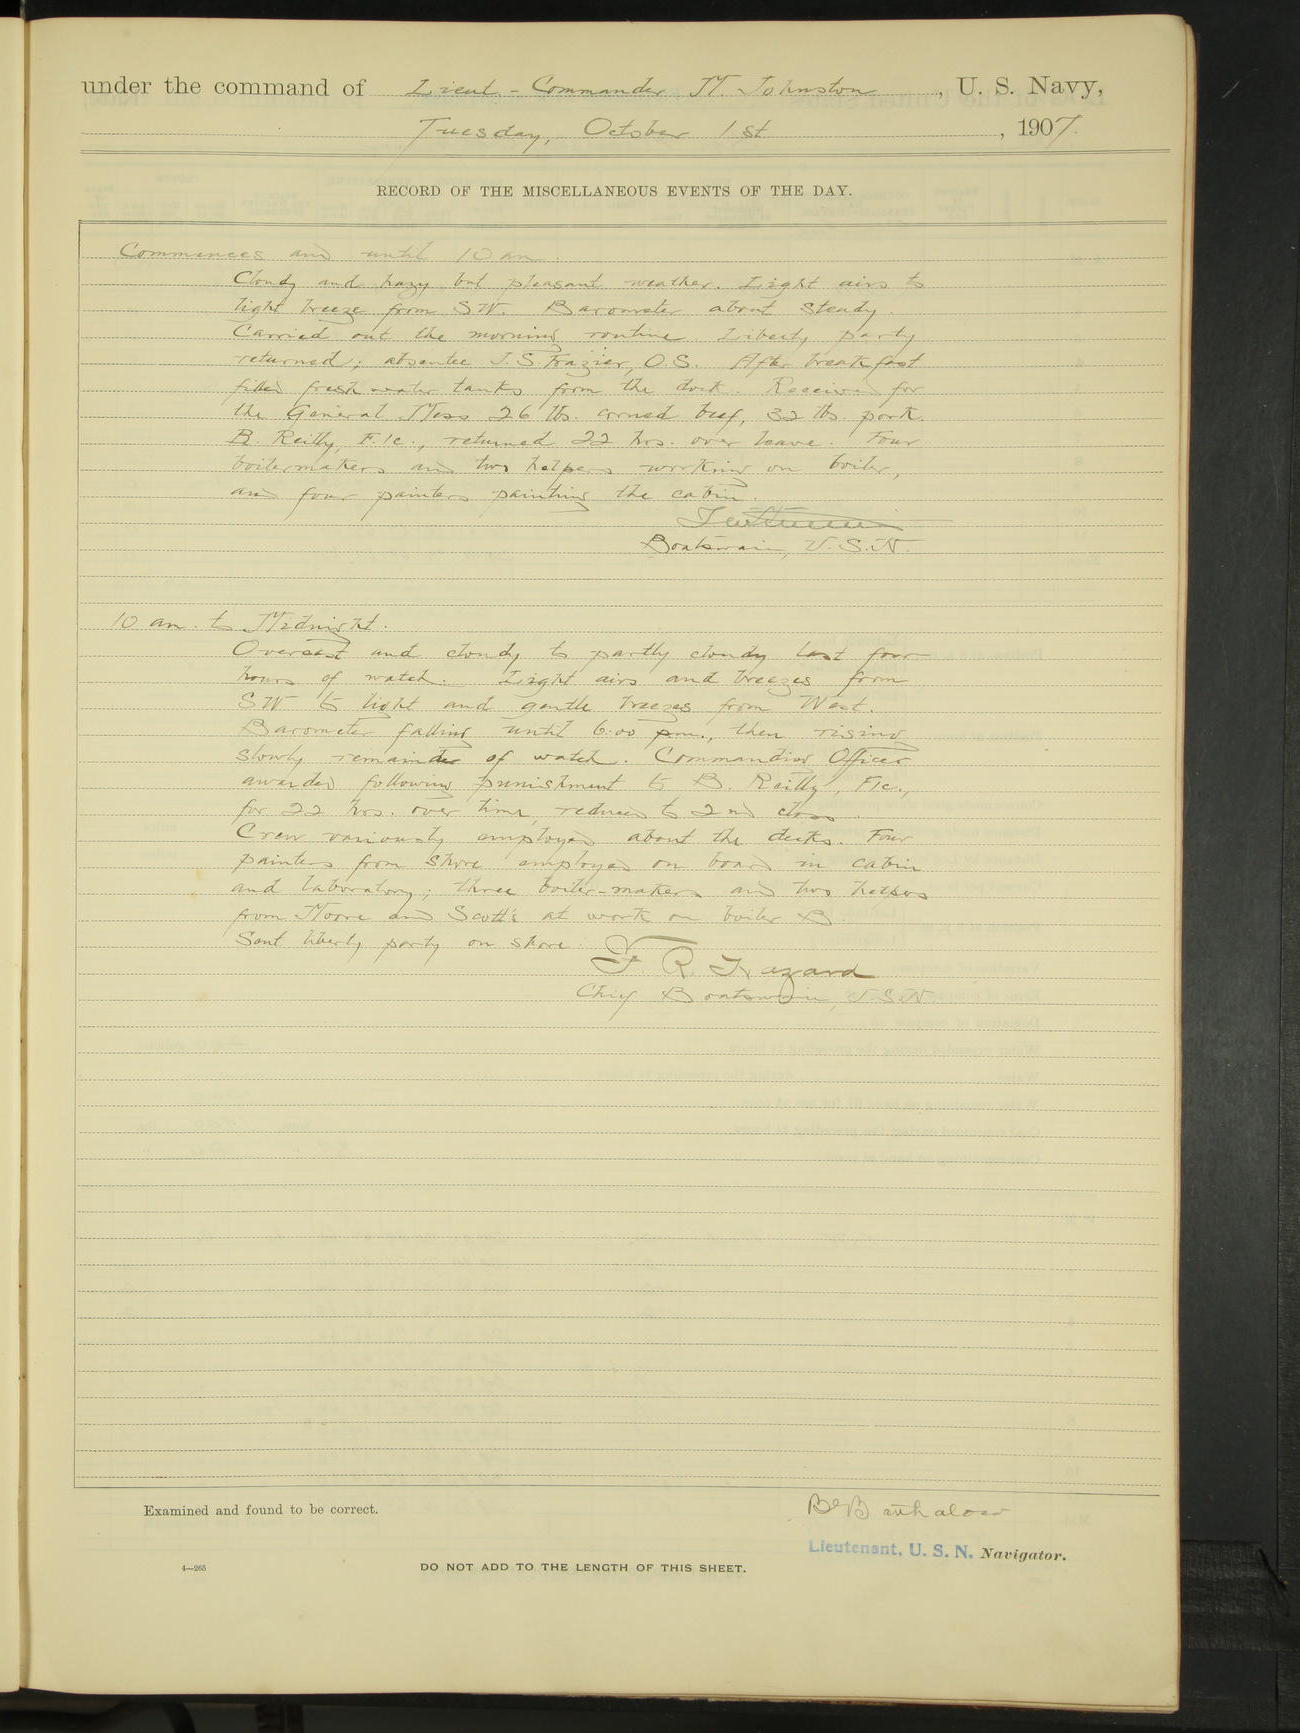 under the command of Lieut.-Commander M. Johnston, U. S. Navy,
Tuesday, October 1st, 1907.
RECORD OF THE MISCELLANEOUS EVENTS OF THE DAY.
Commences and until 10 am.
Cloudy and hazy but pleasant weather. Light airs to
light breeze from SW. Barometer about steady.
Carried out the morning routine. Liberty party
returned; absentee J. S. Frazier, O.S. After breakfast
filled fresh water tanks from the dock. Received for
the General Mess 26 lbs. corned beef, 32 lbs. pork.
B. Reilly, F.1c., returned 22 hrs. over leave. Four
boilermakers and two helpers working on boiler,
and four painters painting the cabin.
Boatswain, U.S.N.
10 am. to Midnight.
Overcast and cloudy to partly cloudy last four
hours of watch. Light airs and breezes from
SW to light and gentle breezes from West.
Barometer falling until 6:00 pm., then rising
slowly remainder of watch. Commanding Officer
awarded following punishment to B. Reilly, F1c.,
for 22 hrs. over time, reduced to 2nd class.
Crew variously employed about the decks. Four
painters from shore employed on board in cabin
and laboratory; three boiler-makers and two helpers
from Moore and Scott's at work on boiler B.
Sent liberty party on shore.
F. R. Hazard
Chief Boatswain, U.S.N.
Examined and found to be correct.
Lieutenant, U. S. N. Navigator.
4—265
DO NOT ADD TO THE LENGTH OF THIS SHEET.